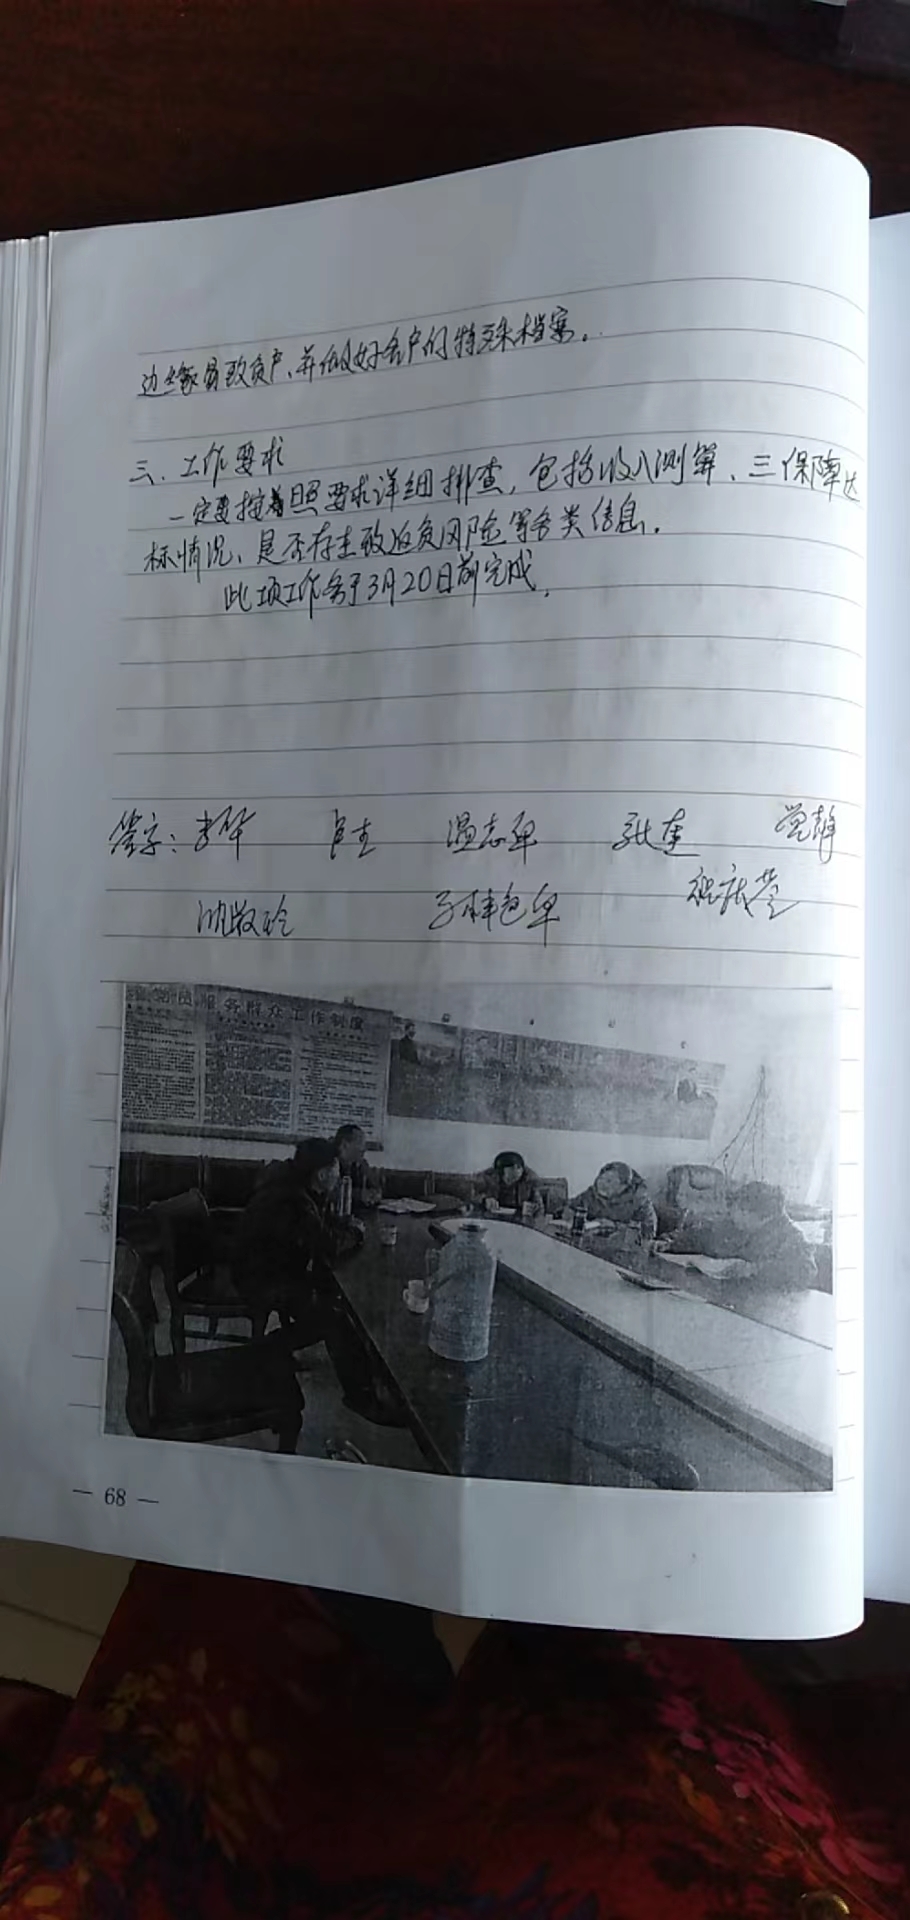 边缘易致贫户、并做好各户的特殊档案。
三、工作要求
一定要按着照要求详细排查，包括收入测算、三保障达
标情况、是否存在致返贫风险等各类信息。
此项工作务于3月20日前完成。
签字：李华 温志军 张建 党静
祝成莹
党员服务群众工作制度
— 68 —